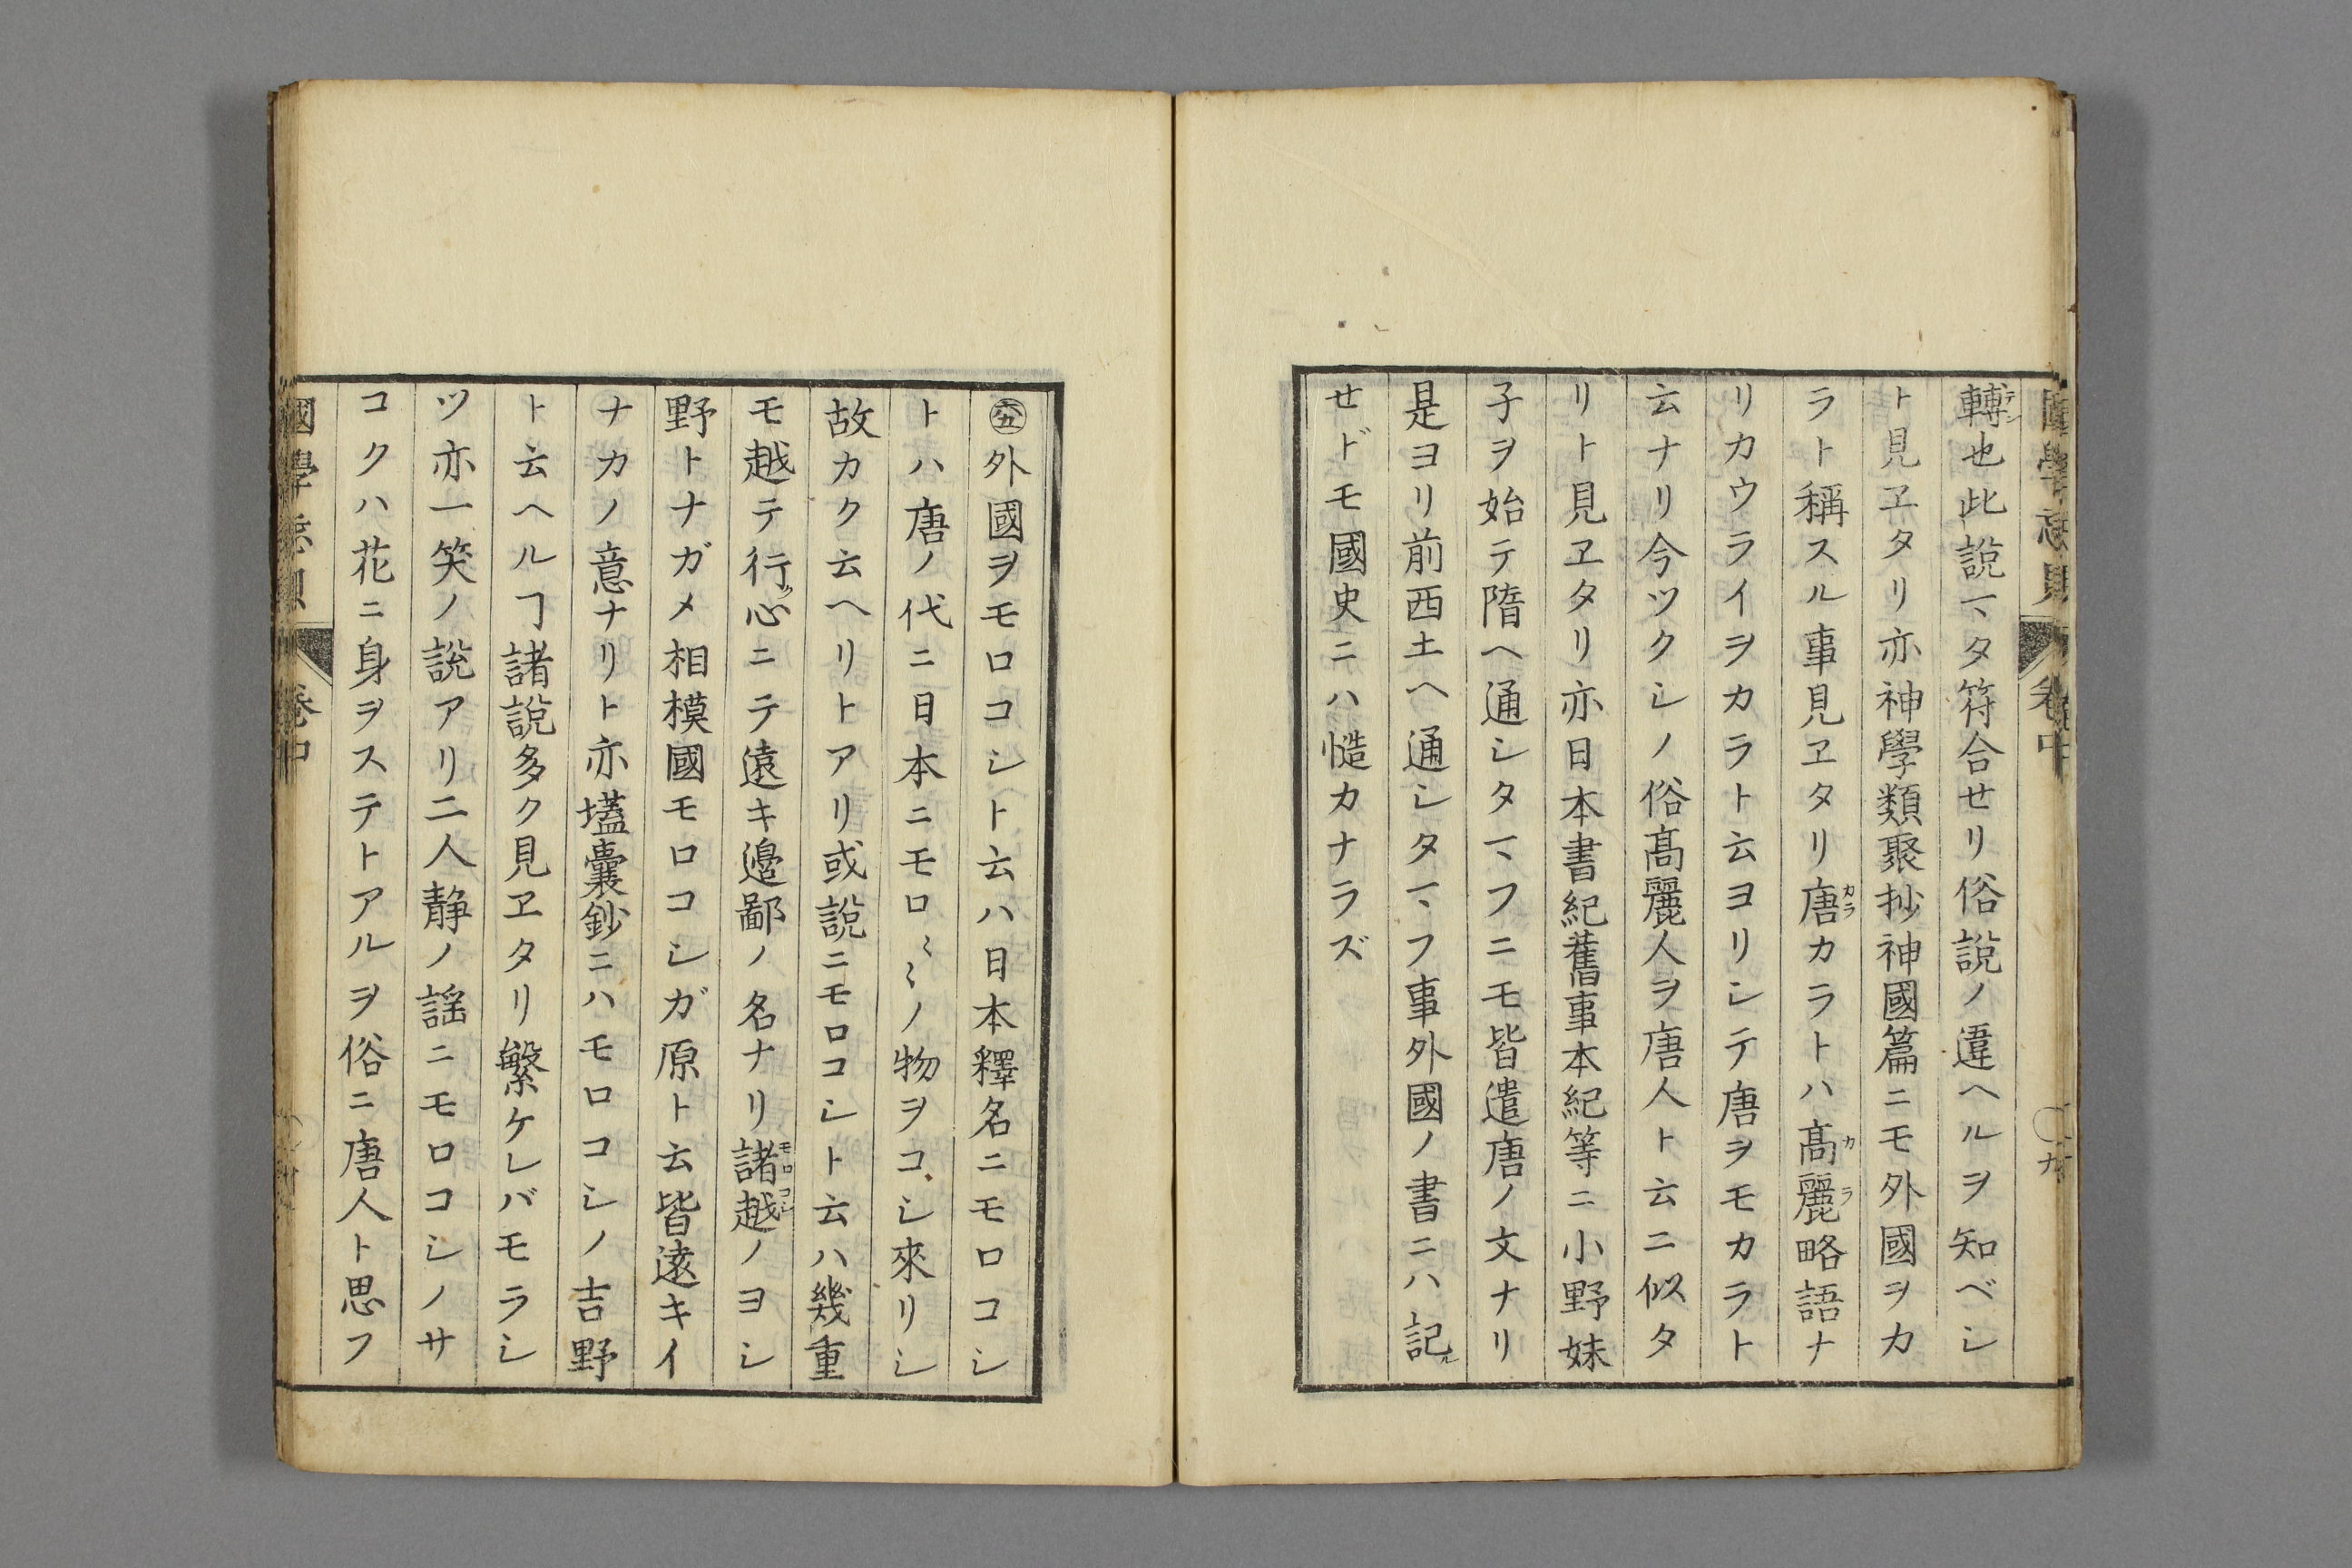 轉テン也此說マタ符合せリ俗說ノ違ヘルヲ知ベシ
ト見ヱタリ亦神學類聚抄神國篇ニモ外國ヲカ
ラト稱スル事見ヱタリ唐カラカラトハ髙麗カラ略語ナ
リカウライヲカラト云ヨリシテ唐ヲモカラト
云ナリ今ツクシノ俗髙麗人ヲ唐人ト云ニ似タ
リト見ヱタリ亦日本書紀舊事本紀等ニ小野妹
子ヲ始テ隋ヘ通シタマフニモ皆遣唐ノ文ナリ
是ヨリ前西土ヘ通シタマフ事外國ノ書ニハ記ル
せドモ國史ニハ慥カナラズ
㊅㊄外國ヲモロコシト云ハ日本釋名ニモロコシ
トハ唐ノ代ニ日本ニモロ〻〻ノ物ヲコシ來リシ
故カク云ヘリトアリ或說ニモロコシト云ハ幾重
モ越テ行ク心ニテ遠キ邊鄙ノ名ナリ諸越モロコシノヨシ
野トナガメ相模國モロコシガ原ト云皆遠キイ
ナカノ意ナリト亦壒囊鈔ニハモロコシノ吉野
ト云ヘルヿ諸說多ク見ヱタリ繁ケレバモラシ
ツ亦一笑ノ說アリ二人静ノ謡ニモロコシノサ
コクハ花ニ身ヲステトアルヲ俗ニ唐人ト思フ
國學忘貝 卷中